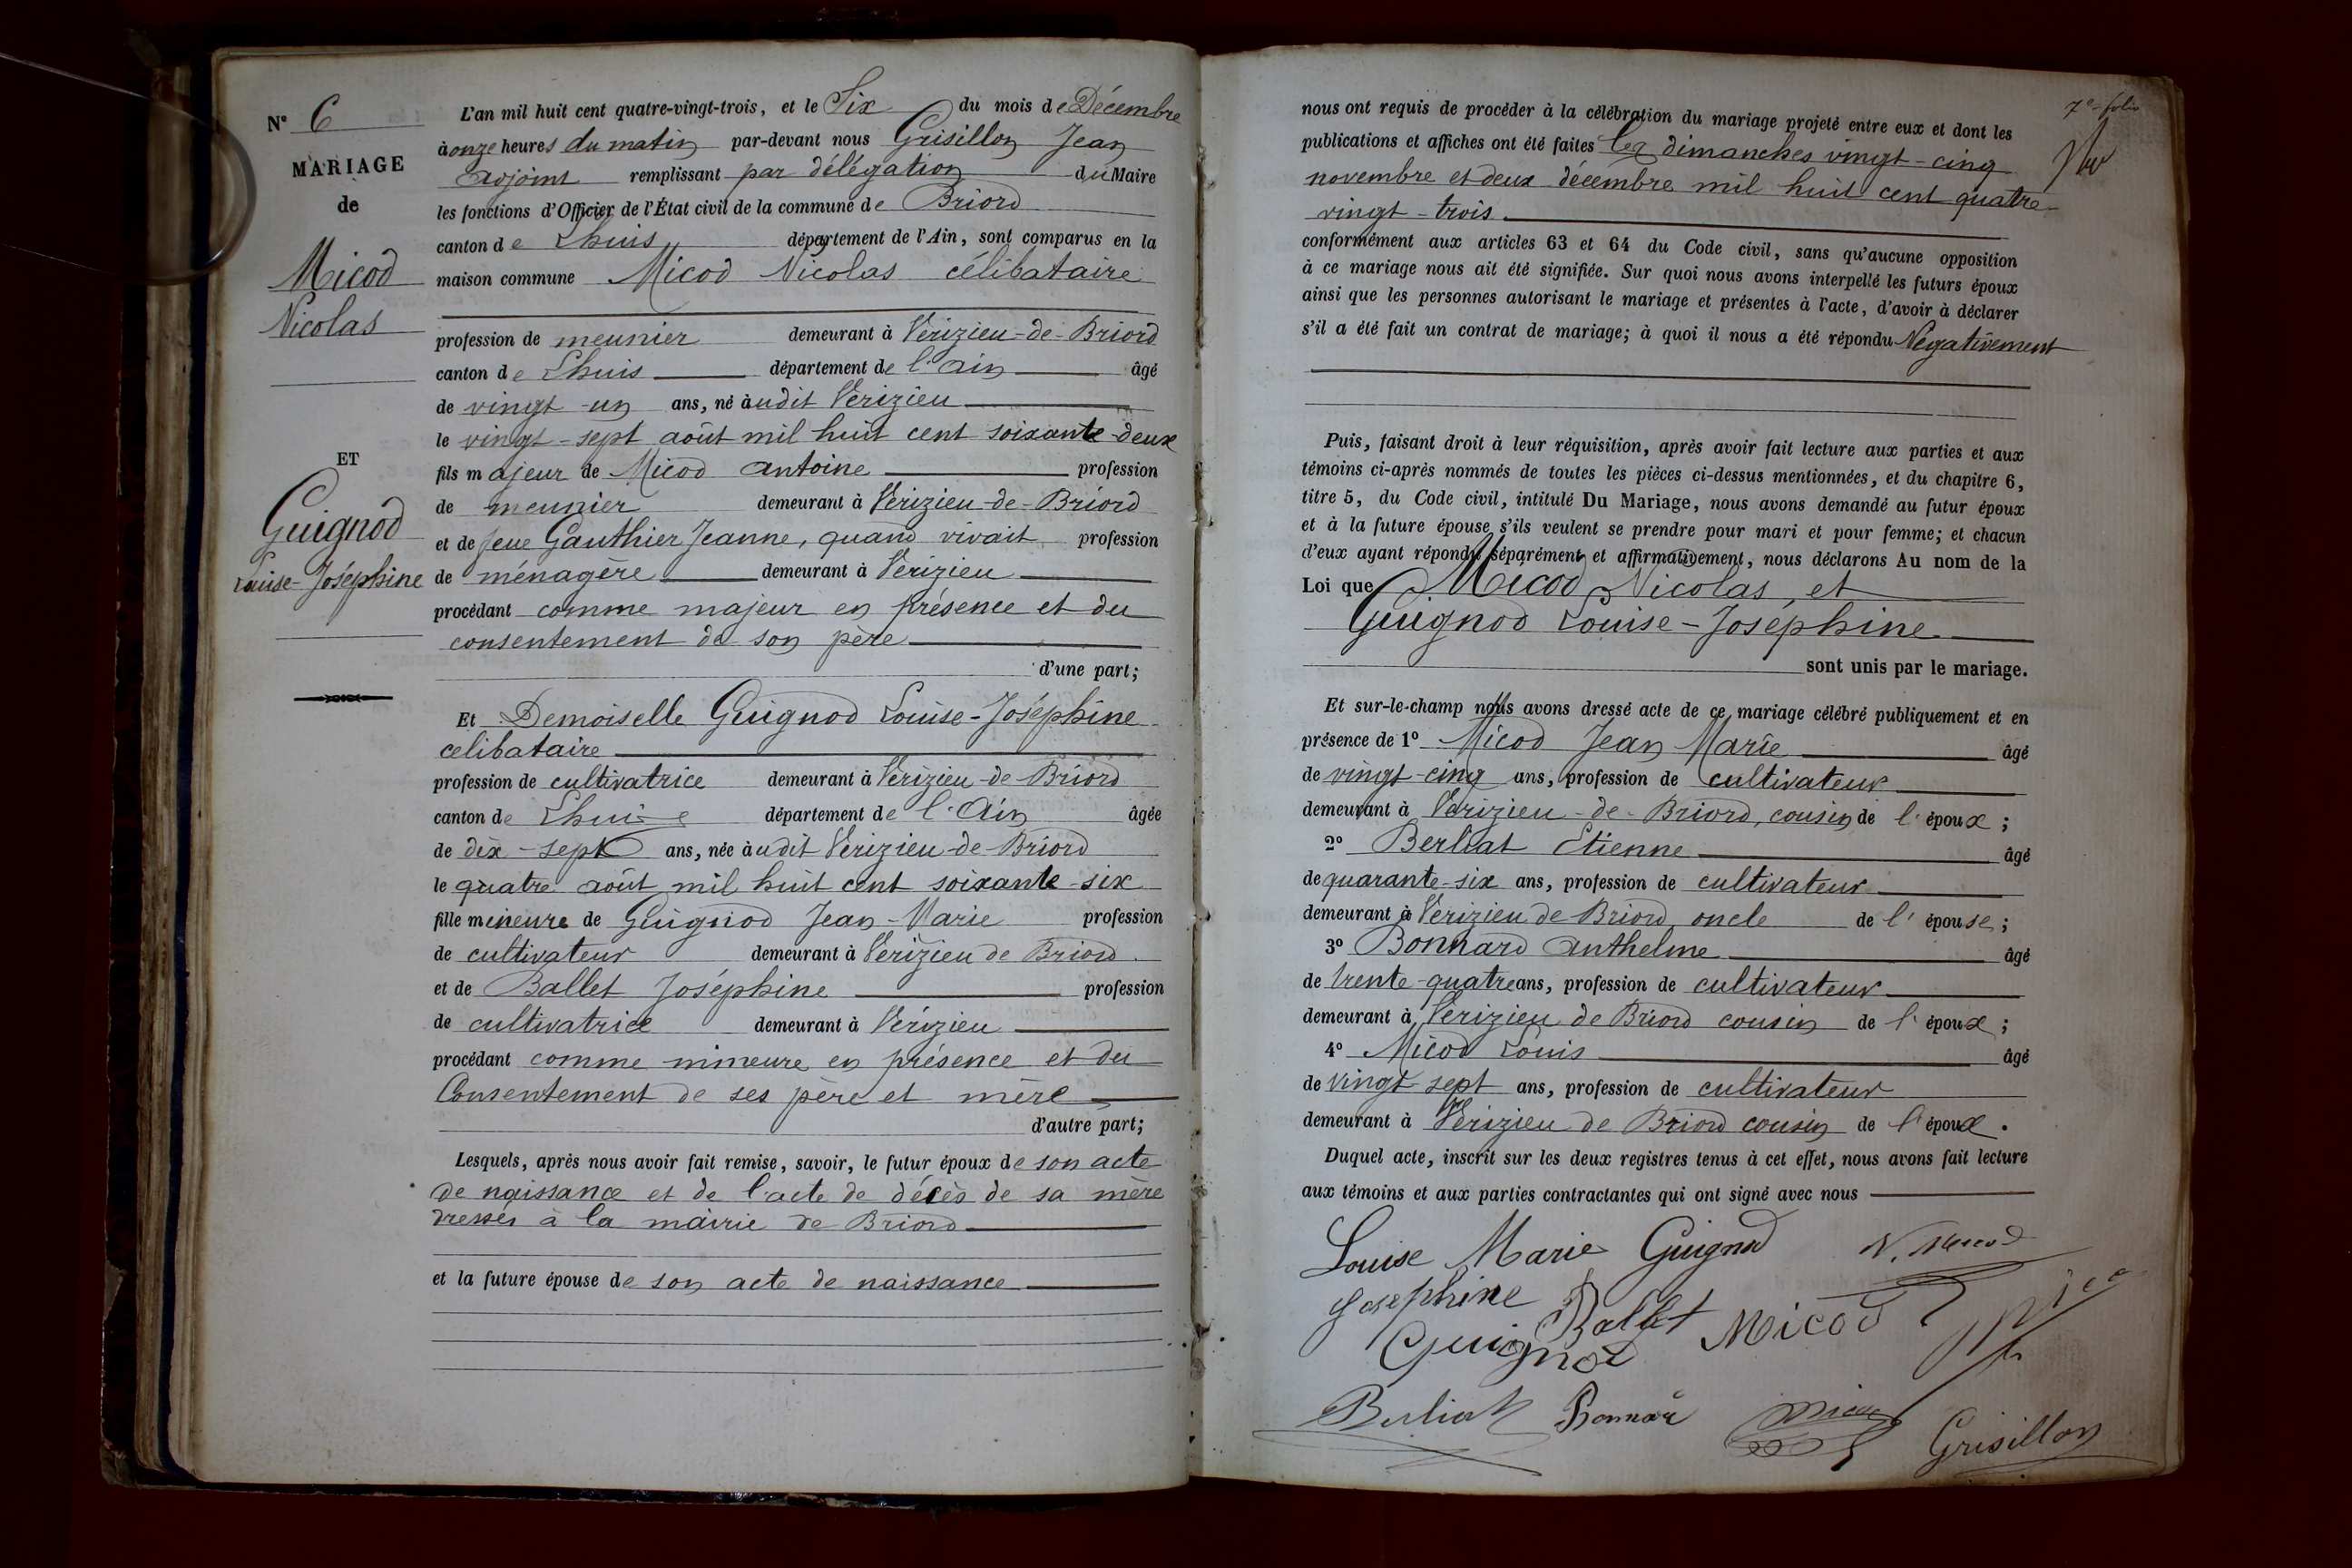 N° 6
MARIAGE
de
Micod
Nicolas
ET
Guignod
Louise-Joséphine
L'an mil huit cent quatre-vingt-trois, et le Six du mois de Décembre
à onze heures du matin par-devant nous Grisillon Jean
adjoint remplissant par délégation du Maire
les fonctions d'Officier de l'État civil de la commune de Briord
canton de Lhuis département de l'Ain, sont comparus en la
maison commune Micod Nicolas célibataire
profession de meunier demeurant à Vérizieu-de-Briord
canton de Lhuis département de l'Ain âgé
de vingt-un ans, né audit Vérizieu
le vingt-sept août mil huit cent soixante-deux
fils majeur de Micod Antoine profession
de meunier demeurant à Vérizieu-de-Briord
et de feue Gauthier Jeanne, quand vivait profession
de ménagère demeurant à Vérizieu
procédant comme majeur en présence et du
consentement de son père
d'une part;
Et Demoiselle Guignod Louise-Joséphine
celibataire
profession de cultivatrice demeurant à Vérizieu-de-Briord
canton de Lhuis département de l'Ain âgée
de dix-sept ans, née audit Vérizieu-de-Briord
le quatre août mil huit cent soixante-six
fille mineure de Guignod Jean-Marie profession
de cultivateur demeurant à Vérizieu de Briord
et de Ballet Joséphine profession
de cultivatrice demeurant à Vérizieu
procédant comme mineure en présence et du
Consentement de ses père et mère
d'autre part;
Lesquels, après nous avoir fait remise, savoir, le futur époux de son acte
de naissance et de l'acte de décès de sa mère
dressés à la mairie de Briord
et la future épouse de son acte de naissance
7e folio
nous ont requis de procéder à la célébration du mariage projeté entre eux et dont les
publications et affiches ont été faites les dimanches vingt-cinq
novembre et deux décembre mil huit cent quatre-
vingt-trois
conformément aux articles 63 et 64 du Code civil, sans qu'aucune opposition
à ce mariage nous ait été signifiée. Sur quoi nous avons interpellé les futurs époux
ainsi que les personnes autorisant le mariage et présentes à l'acte, d'avoir à déclarer
s'il a été fait un contrat de mariage; à quoi il nous a été répondu Négativement
Puis, faisant droit à leur réquisition, après avoir fait lecture aux parties et aux
témoins ci-après nommés de toutes les pièces ci-dessus mentionnées, et du chapitre 6,
titre 5, du Code civil, intitulé Du Mariage, nous avons demandé au futur époux
et à la future épouse s'ils veulent se prendre pour mari et pour femme; et chacun
d'eux ayant répondu séparément et affirmativement, nous déclarons Au nom de la
Loi que Micod Nicolas, et
Guignod Louise-Joséphine
sont unis par le mariage.
Et sur-le-champ nous avons dressé acte de ce mariage célébré publiquement et en
présence de 1° Micod Jean Marie âgé
de vingt-cinq ans, profession de cultivateur
demeurant à Vérizieu-de-Briord, cousin de l'époux;
2° Berliat Etienne âgé
de quarante-six ans, profession de cultivateur
demeurant à Vérizieu de Briord oncle de l'épouse;
3° Bonnard Anthelme âgé
de trente-quatre ans, profession de cultivateur
demeurant à Vérizieu de Briord cousin de l'époux;
4° Micod Louis âgé
de vingt-sept ans, profession de cultivateur
demeurant à Vérizieu de Briord cousin de l'époux.
Duquel acte, inscrit sur les deux registres tenus à cet effet, nous avons fait lecture
aux témoins et aux parties contractantes qui ont signé avec nous
Louise Marie Guignod N. Micod
Josephine Ballet Micod
Guignod
Berliat Bonnar Micod Grisillon